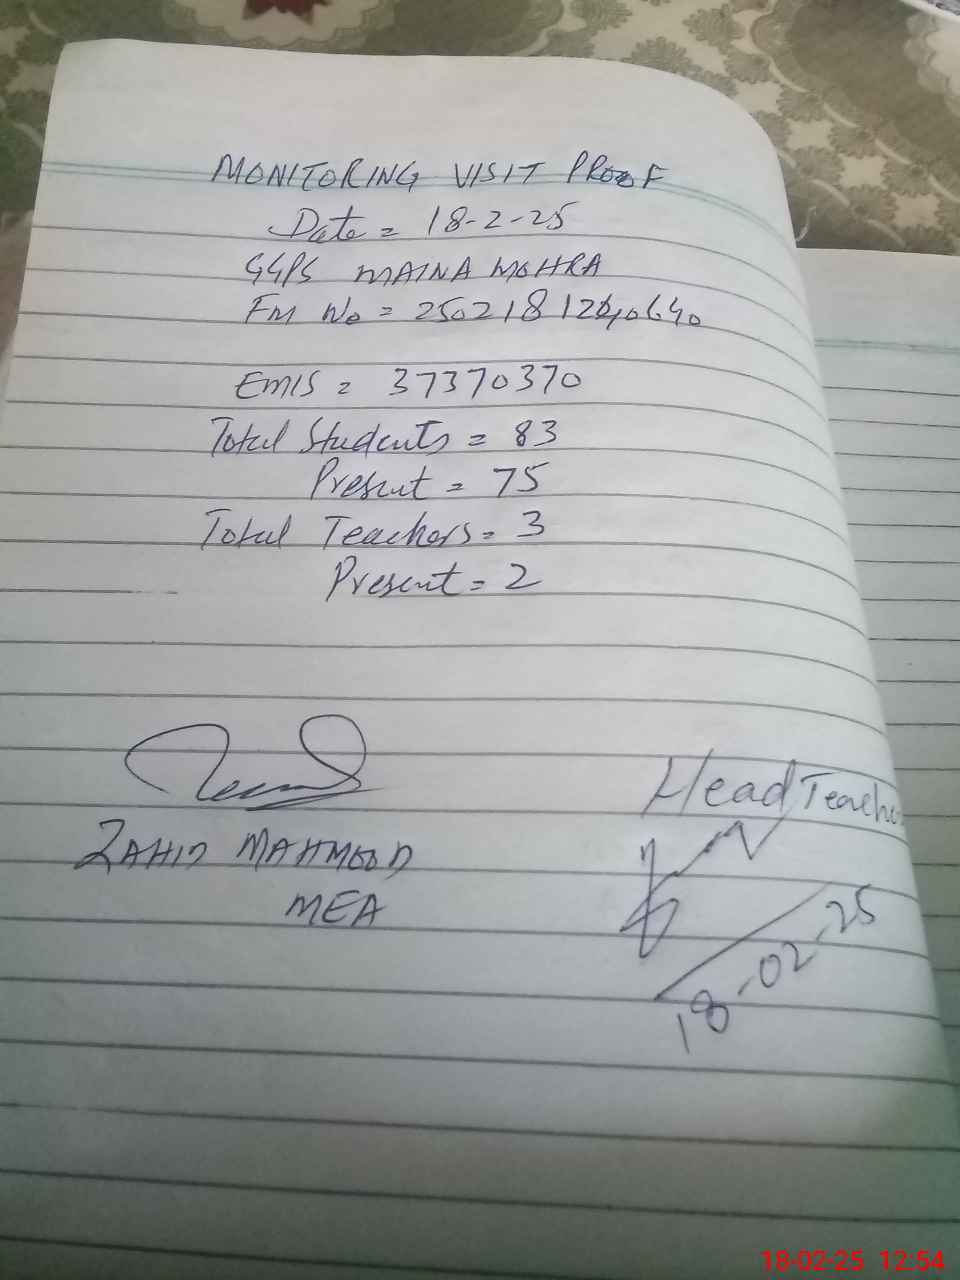 MONITORING VISIT PROOF
Date = 18-2-25
GGPS MAINA MOHRA
FM No =
EMIS = 37370370
Total Students = 83
Present = 75
Total Teachers = 3
Present = 2
Head Teacher
ZAHID MAHMOOD
MEA
18-02-25
18-02-25 12:54